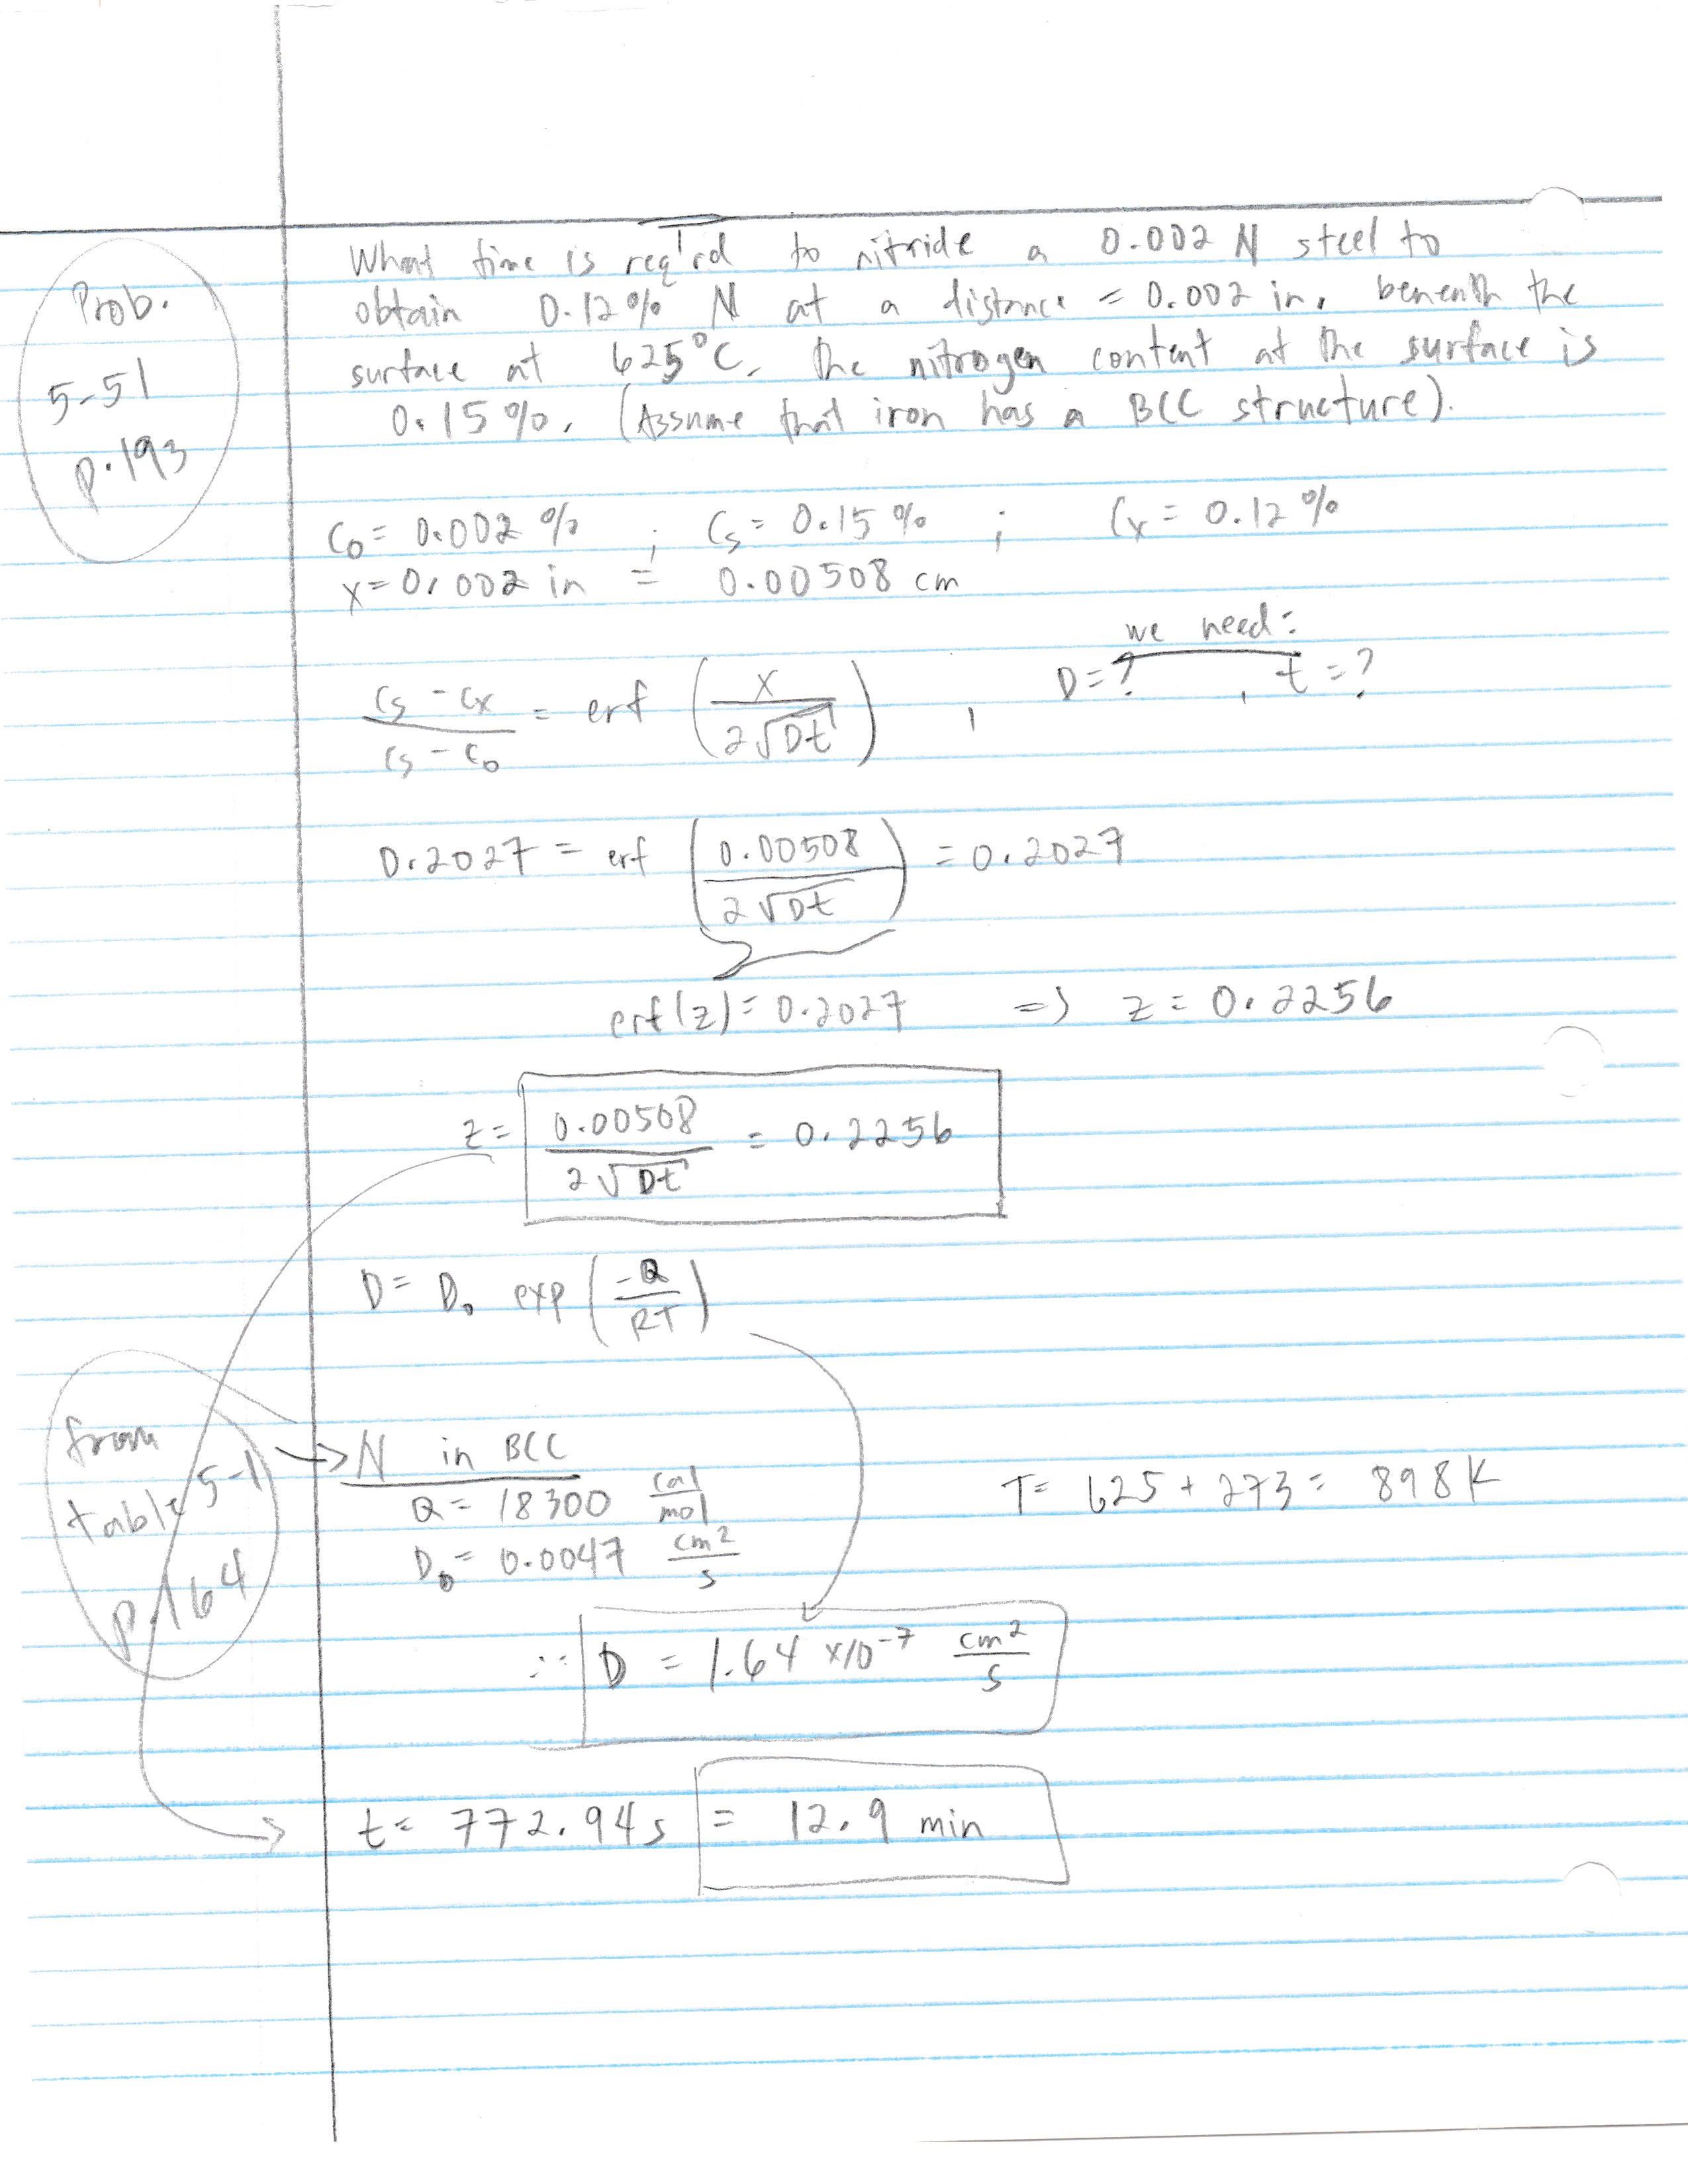 Prob.
5-51
p.193
What time is req'rd to nitride a 0.002 N steel to
obtain 0.12% N at a distance = 0.002 in. beneath the
surface at 625°C. The nitrogen content at the surface is
0.15%. (Assume that iron has a BCC structure).
C₀ = 0.002 % ; Cs = 0.15 % ; Cx = 0.12 %
x = 0.002 in = 0.00508 cm
we need:
D = ? , t = ?
(Cs - Cx)/(Cs - C₀) = erf (x/(2√Dt)) ,
0.2027 = erf (0.00508/(2√Dt)) = 0.2027
erf(z) = 0.2027 => z = 0.2256
z = 0.00508/(2√Dt) = 0.2256
D = D₀ exp (-Q/RT)
from
table 5-1
p.164
N in BCC
Q = 18300 cal/mol
T = 625 + 273 = 898 K
D₀ = 0.0047 cm²/s
∴ D = 1.64 x10⁻⁷ cm²/s
t = 772.94 s = 12.9 min